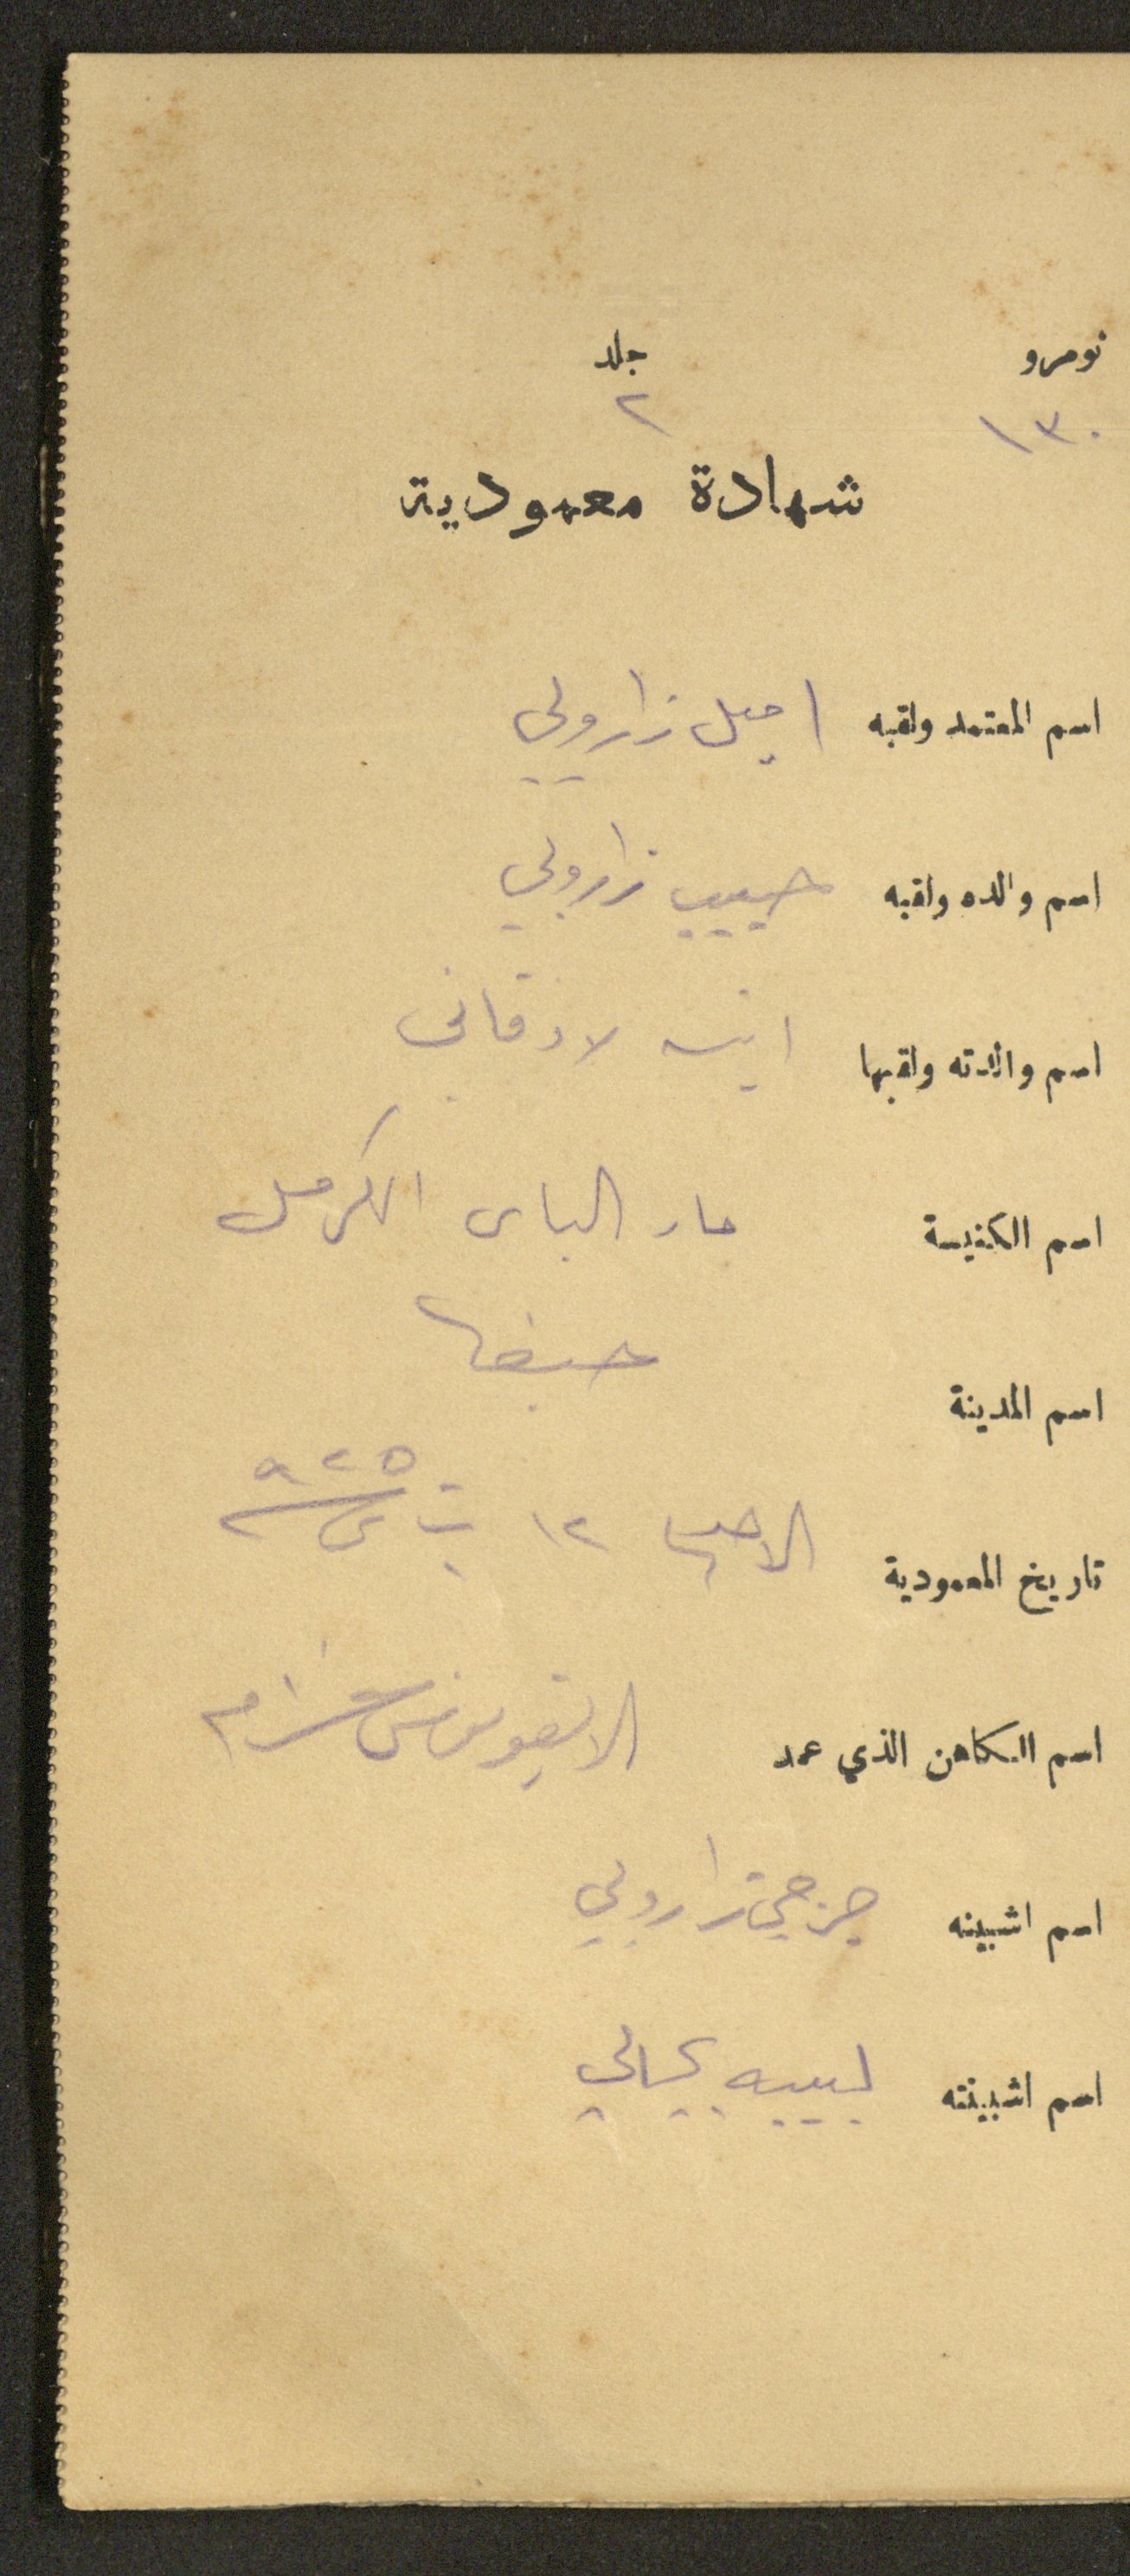 نومرو جلد
١٣٠ ٢
شهادة معمودية
اسم المعتمد ولقبه اميل زارولي
اسم والده ولقبه حبيب زارولي
اسم والدته ولقبها انيسه لاذقاني
اسم الكنيسة مار الياس الكرمل
اسم المدينة حيفا
تاريخ المعمودية الاحد ١٢ ت ٩٢٥
اسم الكاهن الذي عمد الاب
اسم اشبينه جرجي زارولي
اسم اشبينته لبيبه بحالي